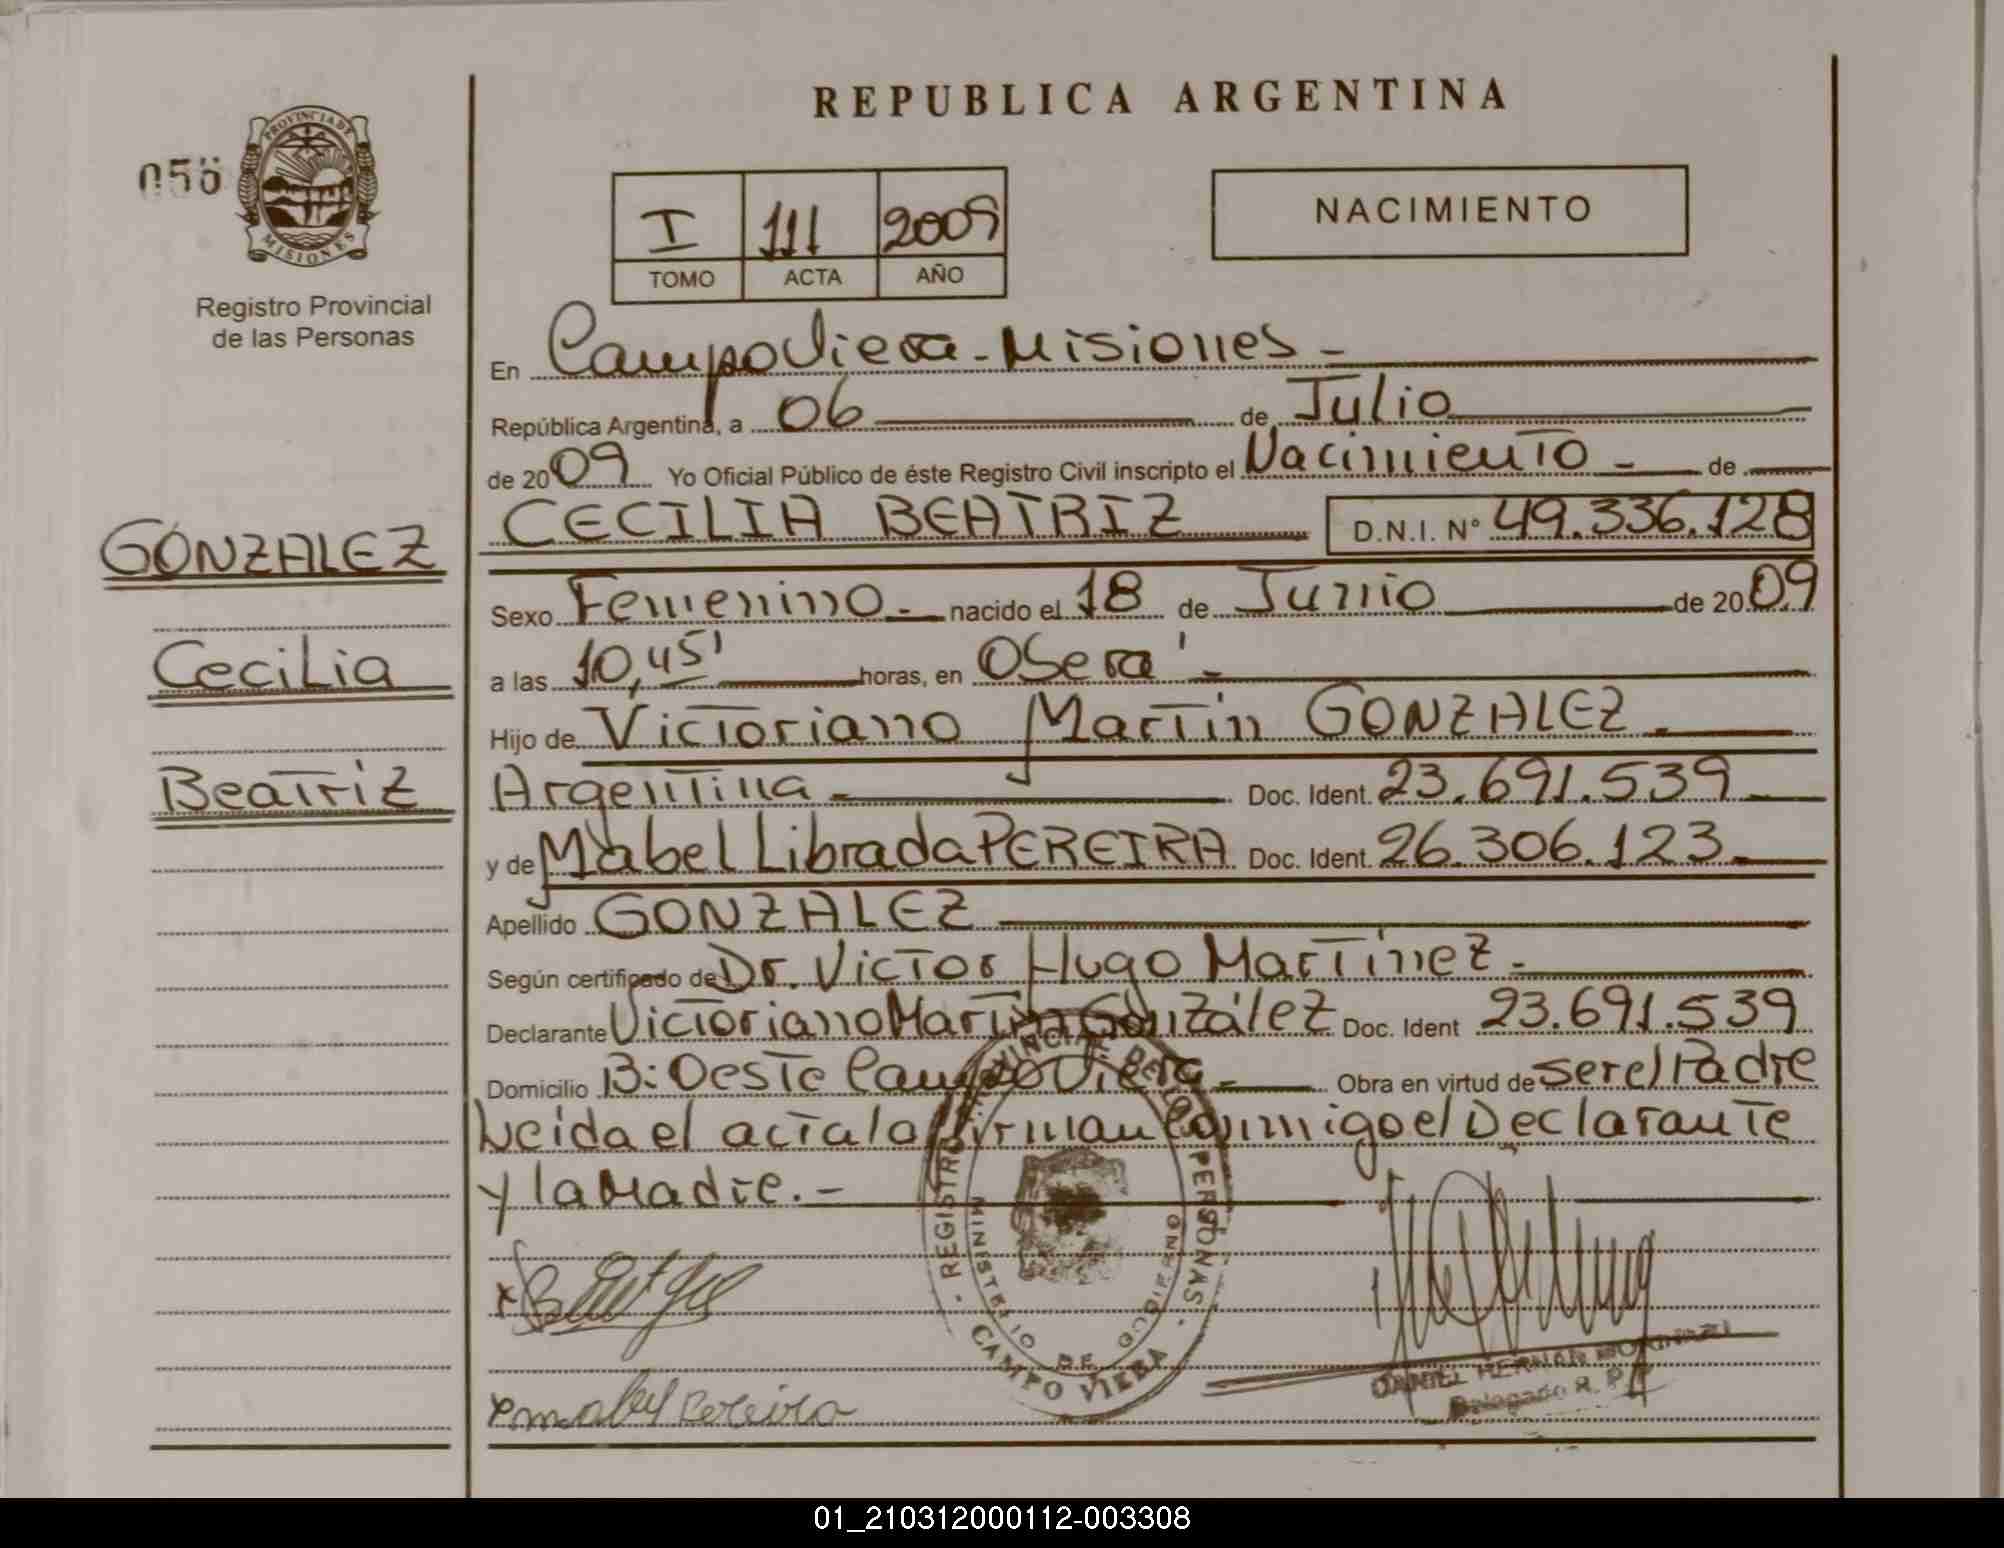 REPUBLICA ARGENTINA
PROVINCIA DE
MISIONES
Registro Provincial
de las Personas
I 111 2009
TOMO ACTA AÑO
NACIMIENTO
En Campo Viera - Misiones -
República Argentina, a 06 de Julio
de 2009 Yo Oficial Público de éste Registro Civil inscripto el Nacimiento - de
CECILIA BEATRIZ D.N.I. N° 49.336.128
GONZALEZ
Sexo Femenino - nacido el 18 de Junio de 2009
Cecilia
a las 10,45' horas, en Oberá -
Hijo de Victoriano Martín GONZALEZ -
Beatriz
Argentina - Doc. Ident. 23.691.539
y de Mabel Librada PEREIRA Doc. Ident. 26.306.123 -
Apellido GONZALEZ
Según certificado de Dr. Victor Hugo Martínez -
Declarante Victoriano Martín González Doc. Ident 23.691.539
Domicilio B: Oeste Campo Viera - Obra en virtud de ser el Padre
Leida el acta la firman conmigo el Declarante
y la Madre. -
REGISTRO PROVINCIAL DE LAS PERSONAS
MINISTERIO DE GOBIERNO
CAMPO VIERA
x
x mabel Pereira
DANIEL HERNAN
Delegado R. P.
01_210312000112-003308